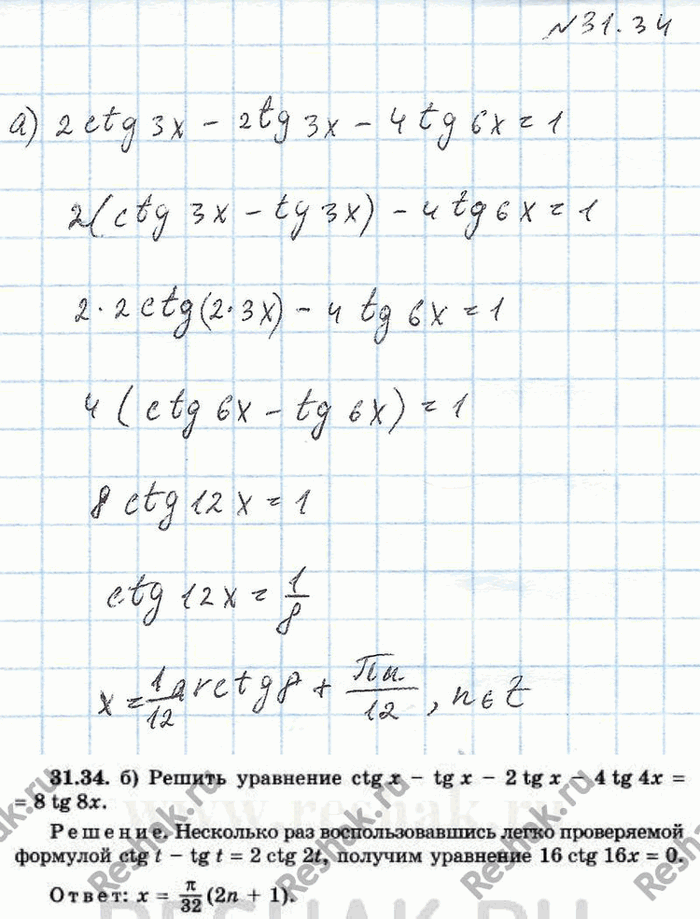 №31.34
а) 2 ctg 3x - 2tg 3x - 4 tg 6x = 1
2(ctg 3x - tg 3x) - 4 tg 6x = 1
2·2 ctg(2·3x) - 4 tg 6x = 1
4 (ctg 6x - tg 6x) = 1
8 ctg 12x = 1
ctg 12x = 1/8
x = 1/12 arctg 8 + πn/12, n∈Z
31.34. б) Решить уравнение ctg x − tg x − 2 tg x − 4 tg 4x =
= 8 tg 8x.
Решение. Несколько раз воспользовавшись легко проверяемой
формулой ctg t − tg t = 2 ctg 2t, получим уравнение 16 ctg 16x = 0.
Ответ: x = π/32 (2n + 1).
www.reshak.ru
Reshak.ru
Reshak.ru
Reshak.ru
Reshak.ru
RESHAK.RU